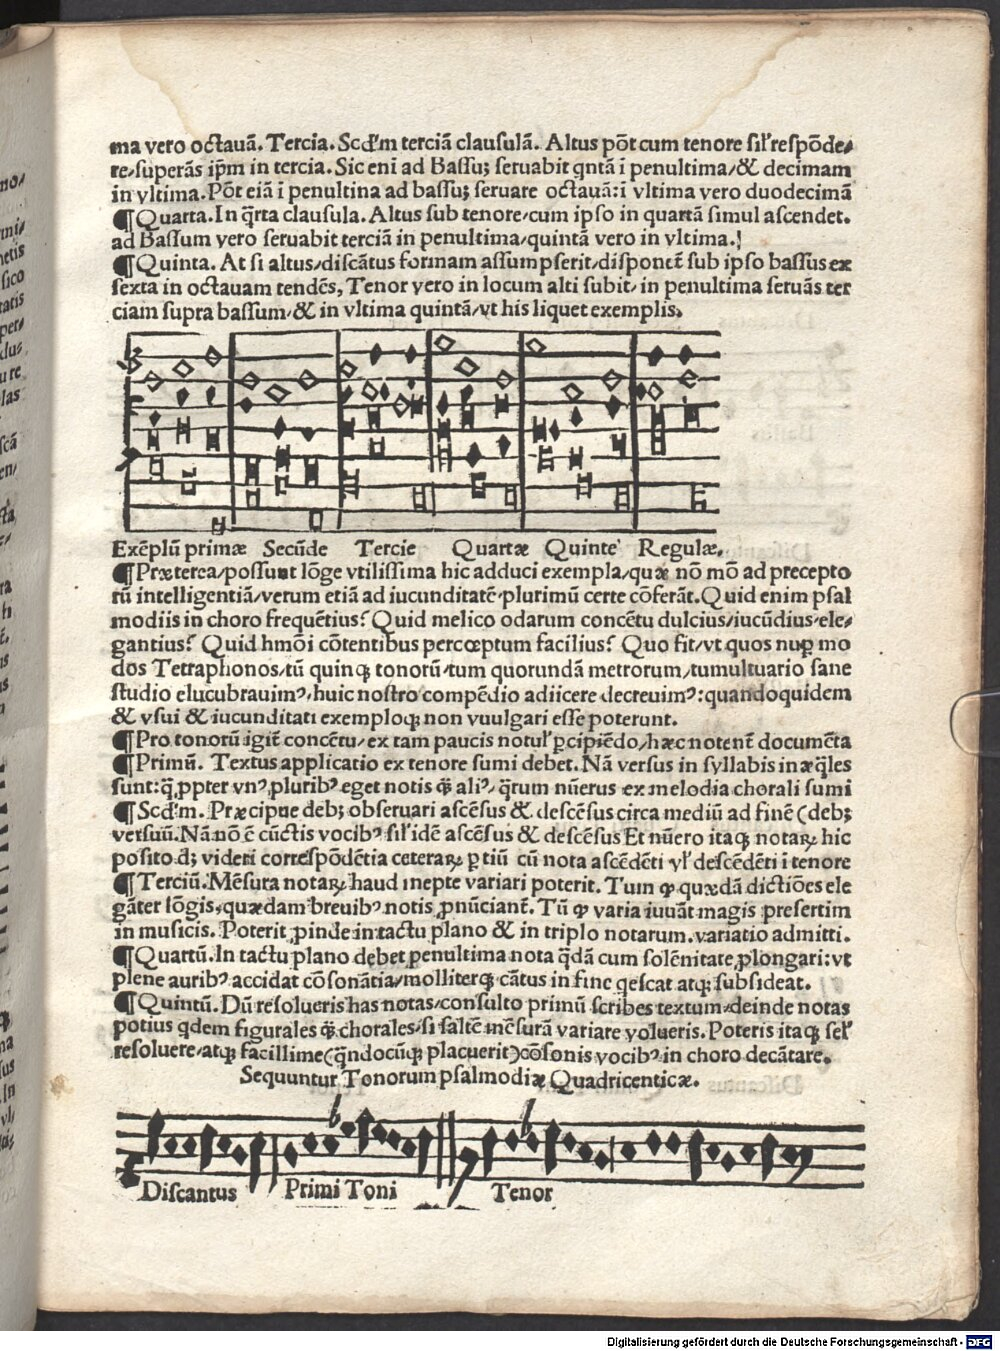 ma vero octauā. Tercia. Scd'm terciā clausulā. Altus põt cum tenore sil'respōde⸗
re/superās ip̄m in tercia. Sic eni ad Bassuʒ seruabit qntā i penultima/& decimam
in vltima. Põt eiā i penultina ad bassuʒ seruare octauā:i vltima vero duodecimā
¶Quarta. In q̄rta clausula. Altus sub tenore/cum ipso in quartā simul ascendet.
ad Bassum vero seruabit terciā in penultima/quintā vero in vltima.
¶Quinta. At si altus/discātus formam assumpserit/disponet̄ sub ipso bassus ex
sexta in octauam tendēs, Tenor vero in locum alti subit/ in penultima seruās ter
ciam supra bassum/& in vltima quintā/vt his liquet exemplis.
Exēplū primæ Secūde Tercie Quartæ Quinte Regulæ.
¶Præterea/possunt lōge vtilissima hic adduci exempla/quæ nō mō ad precepto
rū intelligentiā/verum etiā ad iucunditatē plurimū certe cōferāt. Quid enim psal
modiis in choro frequētius? Quid melico odarum concētu dulcius/iucūdius/ele⸗
gantius? Quid hmōi cōtentibus percœptum facilius? Quo fit/vt quos nuꝑ mo
dos Tetraphonos/tū quinqꝫ tonorū/tum quorundā metrorum/tumultuario sane
studio elucubrauimꝰ/huic nostro compēdio adiicere decreuimꝰ:quandoquidem
& vsui & iucunditati exemploqꝫ non vuulgari esse poterunt.
¶Pro tonorū igit̄ concētu/ex tam paucis notul'ꝑcipiēdo/hæc notent̄ documēta
¶Primū. Textus applicatio ex tenore sumi debet. Nā versus in syllabis inæq̄les
sunt:q̄ ꝓpter vnꝰ pluribꝰ eget notis q̄ꝫ aliꝰ/ q̄rum nūerus ex melodia chorali sumi
¶Scd'm. Præcipue debꝫ obseruari ascēsus & descēsus circa mediū ad finē (debꝫ
versuū. Nā nō ē cūctis vocibꝰ sil'idē ascēsus & descēsus Et nūero itaqꝫ notaꝝ hic
posito dꝫ videri correspōdētia ceteraꝝ ꝑtiū cū nota ascēdēti vl'descēdēti i tenore
¶Terciū. Mēsura notaꝝ haud inepte variari poterit. Tum ꝙ quædā dictiōes ele
gāter lōgis/quædam breuibꝰ notis ꝓnūciant̄. Tū ꝙ varia iuuāt magis presertim
in musicis. Poterit ꝓinde in tactu plano & in triplo notarum variatio admitti.
¶Quartū. In tactu plano debet penultima nota q̄dā cum solēnitate ꝓlongari: vt
plene auribꝰ accidat cōsonātia/molliterqꝫ cātus in fine qescat atqꝫ subsideat.
¶Quintū. Dū resolueris has notas/consulto primū scribes textum/deinde notas
potius qdem figurales q̄ꝫ chorales/si saltē mēsurā variare volueris. Poteris itaqꝫ sel'
resoluere/atqꝫ facillime(q̄ndocūqꝫ placuerit)cōsonis vocibꝰ in choro decātare.
Sequuntur Tonorum psalmodiæ Quadricenticæ.
Discantus Primi Toni Tenor
Digitalisierung gefördert durch die Deutsche Forschungsgemeinschaft - DFG